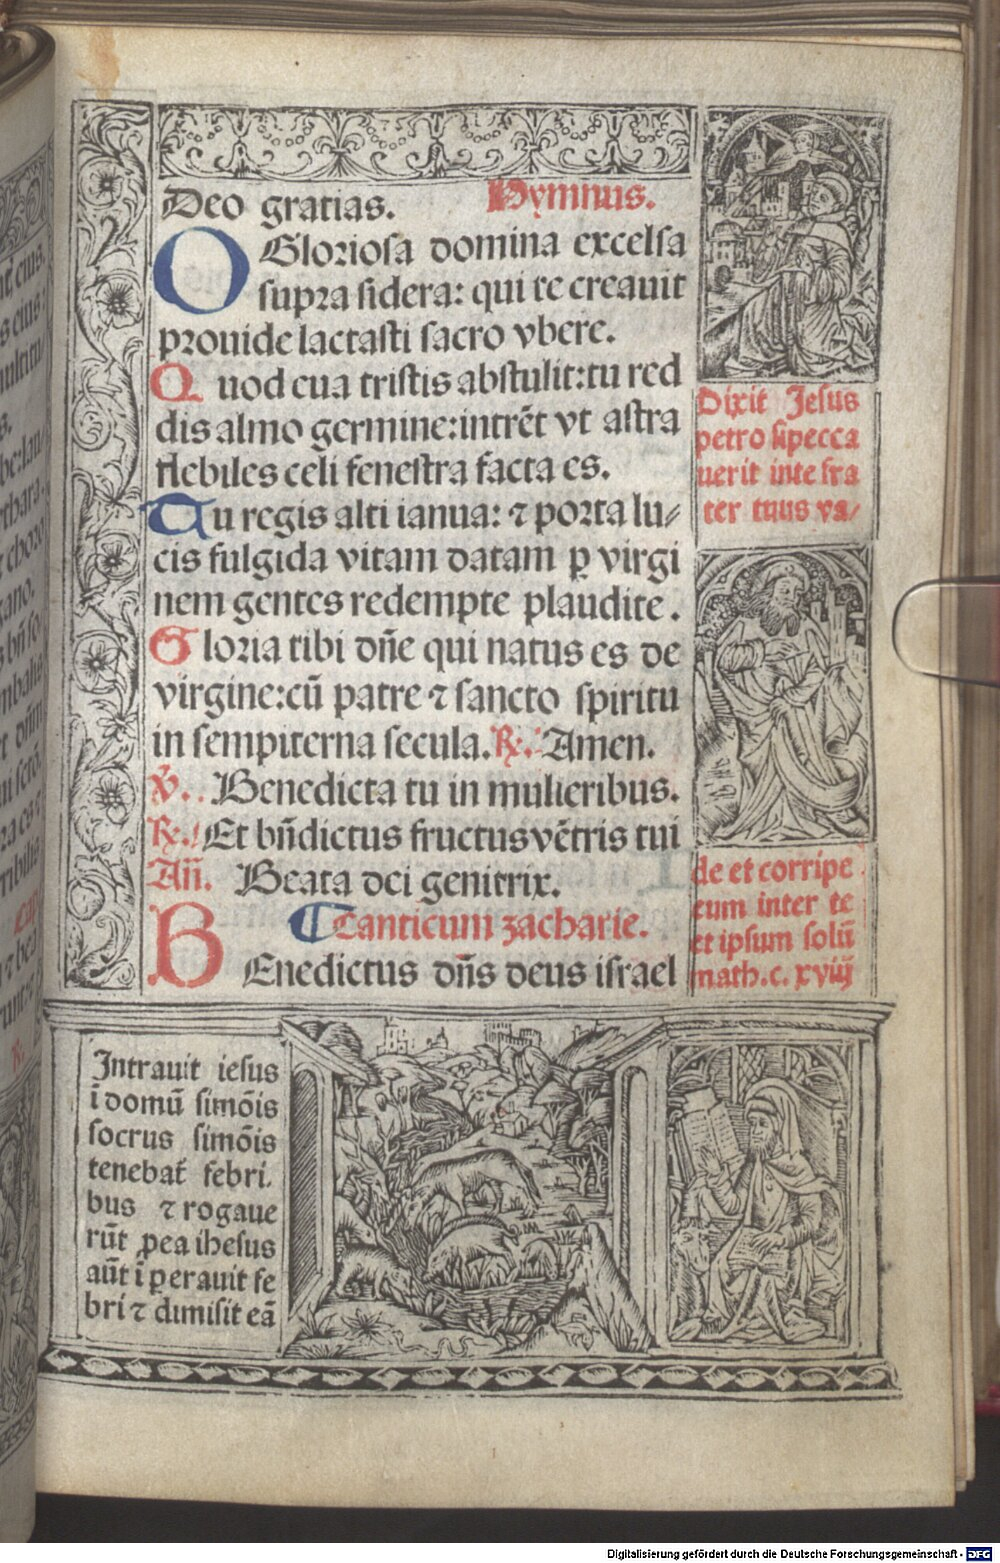 Deo gratias. Hymnus.
O Gloriosa domina excelsa
supra sidera: qui te creauit
prouide lactasti sacro vbere.
Quod eua tristis abstulit: tu red
dis almo germine: intrēt vt astra
flebiles celi fenestra facta es.
Tu regis alti ianua: ⁊ porta lu⸗
cis fulgida vitam datam ꝑ virgi
nem gentes redempte plaudite.
Gloria tibi dñe qui natus es de
virgine: cū patre ⁊ sancto spiritu
in sempiterna secula. ℟. Amen.
℣. Benedicta tu in mulieribus.
℟. Et bñdictus fructus vētris tui
Añ. Beata dei genitrix.
Canticum zacharie.
BEnedictus dñs deus israel
Dixit Jesus
petro si pecca
uerit in te fra
ter tuus va/
de et corripe
eum inter te
et ipsum solū
math. c. xviij
Intrauit iesus
ī domū simōis
socrus simōis
tenebat̄ febri.
bus ⁊ rogaue
rūt ꝓ ea ihesus
aūt īꝑerauit fe
bri ⁊ dimisit eā
Digitalisierung gefördert durch die Deutsche Forschungsgemeinschaft - DFG